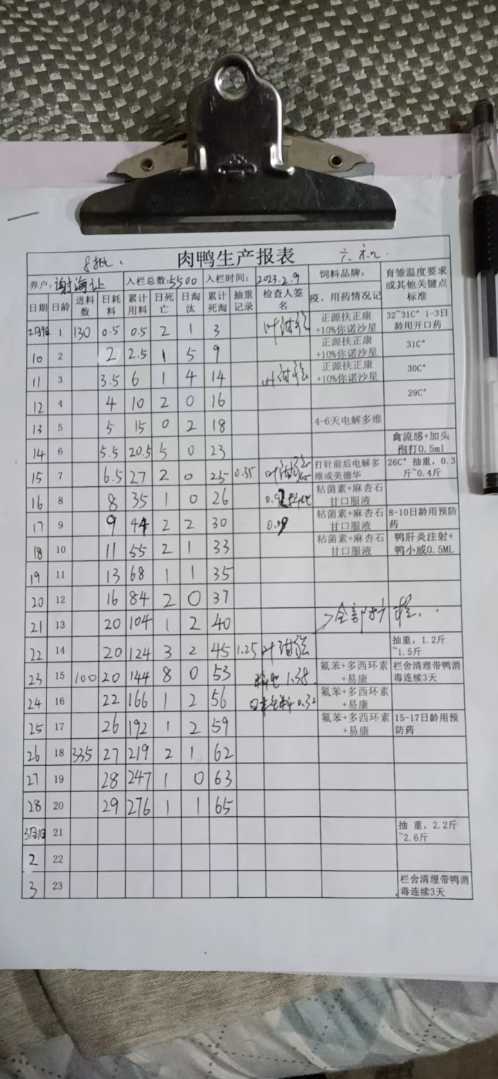 肉鸭生产报表
养户: 入栏总数:5500 入栏时间: 2023.2.9 饲料品牌: 育雏温度要求或其他关键点标准
日期 日龄 进料数 日耗料 累计用料 日死亡 日淘汰 累计死淘 抽重记录 检查人签名 疫、用药情况记
1 130 0.5 0.5 2 1 3 正源扶正康+10%你诺沙星 32~31C° 1-3日龄用开口药
10 2 2 2.5 1 5 9 正源扶正康+10%你诺沙星 31C°
11 3 3.5 6 1 4 14 正源扶正康+10%你诺沙星 30C°
12 4 4 10 2 0 16 29C°
13 5 5 15 0 2 18 4-6天电解多维
14 6 5.5 20.5 5 0 23 禽流感+加头孢打0.5ml
15 7 6.5 27 2 0 25 0.35 打针前后电解多维或美德华 26C° 抽重，0.3斤~0.4斤
16 8 8 35 1 0 26 粘菌素+麻杏石甘口服液
17 9 9 44 2 2 30 粘菌素+麻杏石甘口服液 8-10日龄用预防药
18 10 11 55 2 1 33 粘菌素+麻杏石甘口服液 鸭肝炎注射+鸭小威0.5ML
19 11 13 68 1 1 35
20 12 16 84 2 0 37
21 13 20 104 1 2 40 全部扩栏..
22 14 20 124 3 2 45 1.25 抽重，1.2斤~1.5斤
23 15 100 20 144 8 0 53 1.38 氟苯+多西环素+易康 栏舍清理带鸭消毒连续3天
24 16 22 166 1 2 56 0.32 氟苯+多西环素+易康
25 17 26 192 1 2 59 氟苯+多西环素+易康 15-17日龄用预防药
26 18 335 27 219 2 1 62
27 19 28 247 1 0 63
28 20 29 276 1 1 65
3月1日 21 抽 重，2.2斤~2.6斤
2 22
3 23 栏舍清理带鸭消毒连续3天